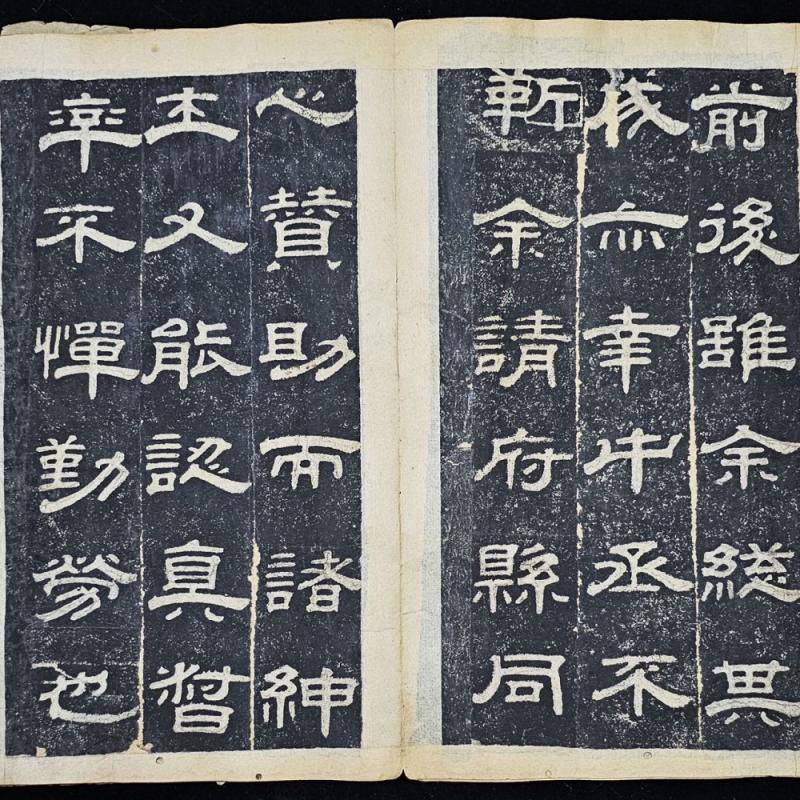 前後雖余緫其
成亦幸中丞不
靳余請府縣同
心贊助而諸紳
士又能認真督
率不憚勤勞也